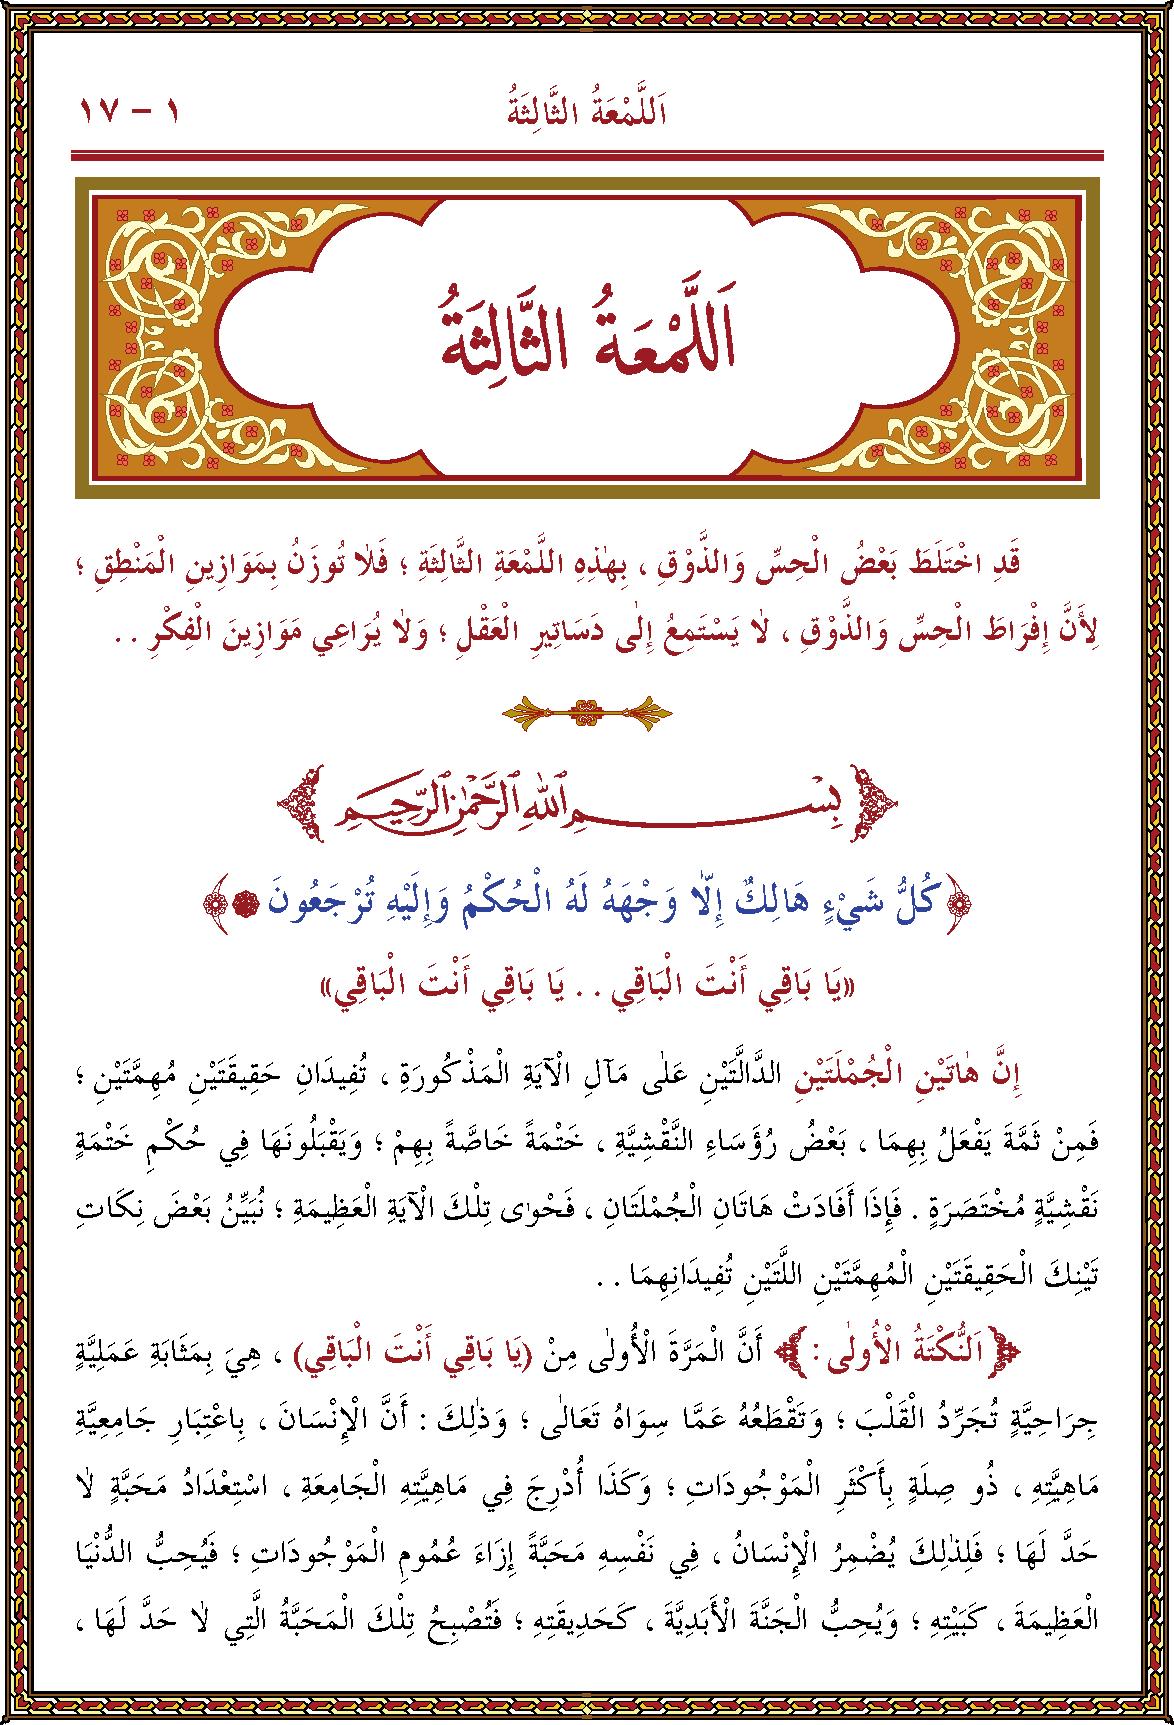 اَللَّمْعَةُ الثَّالِثَةُ
١ – ١٧
اَللَّمْعَةُ الثَّالِثَةُ
قَدِ اخْتَلَطَ بَعْضُ الْحِسِّ وَالذَّوْقِ ، بِهٰذِهِ اللَّمْعَةِ الثَّالِثَةِ ؛ فَلَا تُوزَنُ بِمَوَازِينِ الْمَنْطِقِ ؛
لِأَنَّ إِفْرَاطَ الْحِسِّ وَالذَّوْقِ ، لَا يَسْتَمِعُ إِلٰى دَسَاتِيرِ الْعَقْلِ ؛ وَلَا يُرَاعِي مَوَازِينَ الْفِكْرِ . .
بِسْمِ اللّٰهِ الرَّحْمٰنِ الرَّحِيمِ
﴿كُلُّ شَيْءٍ هَالِكٌ إِلَّا وَجْهَهُ لَهُ الْحُكْمُ وَإِلَيْهِ تُرْجَعُونَ﴾
«يَا بَاقِي أَنْتَ الْبَاقِي . . يَا بَاقِي أَنْتَ الْبَاقِي»
إِنَّ هٰاتَيْنِ الْجُمْلَتَيْنِ الدَّالَّتَيْنِ عَلٰى مَآلِ الْآيَةِ الْمَذْكُورَةِ ، تُفِيدَانِ حَقِيقَتَيْنِ مُهِمَّتَيْنِ ؛
فَمِنْ ثَمَّةَ يَفْعَلُ بِهِمَا ، بَعْضُ رُؤَسَاءِ النَّقْشِيَّةِ ، خَتْمَةً خَاصَّةً بِهِمْ ؛ وَيَقْبَلُونَهَا فِي حُكْمِ خَتْمَةٍ
نَقْشِيَّةٍ مُخْتَصَرَةٍ . فَإِذَا أَفَادَتْ هَاتَانِ الْجُمْلَتَانِ ، فَحْوٰى تِلْكَ الْآيَةِ الْعَظِيمَةِ ؛ نُبَيِّنُ بَعْضَ نِكَاتِ
تَيْنِكَ الْحَقِيقَتَيْنِ الْمُهِمَّتَيْنِ اللَّتَيْنِ تُفِيدَانِهِمَا . .
﴿اَلنُّكْتَةُ الْأُولٰى :﴾ أَنَّ الْمَرَّةَ الْأُولٰى مِنْ (يَا بَاقِي أَنْتَ الْبَاقِي) ، هِيَ بِمَثَابَةِ عَمَلِيَّةٍ
جِرَاحِيَّةٍ تُجَرِّدُ الْقَلْبَ ؛ وَتَقْطَعُهُ عَمَّا سِوَاهُ تَعَالٰى ؛ وَذٰلِكَ : أَنَّ الْإِنْسَانَ ، بِاعْتِبَارِ جَامِعِيَّةِ
مَاهِيَّتِهِ ، ذُو صِلَةٍ بِأَكْثَرِ الْمَوْجُودَاتِ ؛ وَكَذَا أُدْرِجَ فِي مَاهِيَّتِهِ الْجَامِعَةِ ، اسْتِعْدَادُ مَحَبَّةٍ لَا
حَدَّ لَهَا ؛ فَلِذٰلِكَ يُضْمِرُ الْإِنْسَانُ ، فِي نَفْسِهِ مَحَبَّةً إِزَاءَ عُمُومِ الْمَوْجُودَاتِ ؛ فَيُحِبُّ الدُّنْيَا
الْعَظِيمَةَ ، كَبَيْتِهِ ؛ وَيُحِبُّ الْجَنَّةَ الْأَبَدِيَّةَ ، كَحَدِيقَتِهِ ؛ فَتُصْبِحُ تِلْكَ الْمَحَبَّةُ الَّتِي لَا حَدَّ لَهَا ،